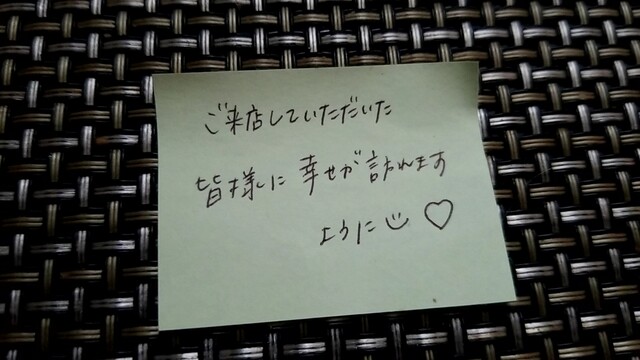 ご来店していただいた
皆様に幸せが訪れます
ように